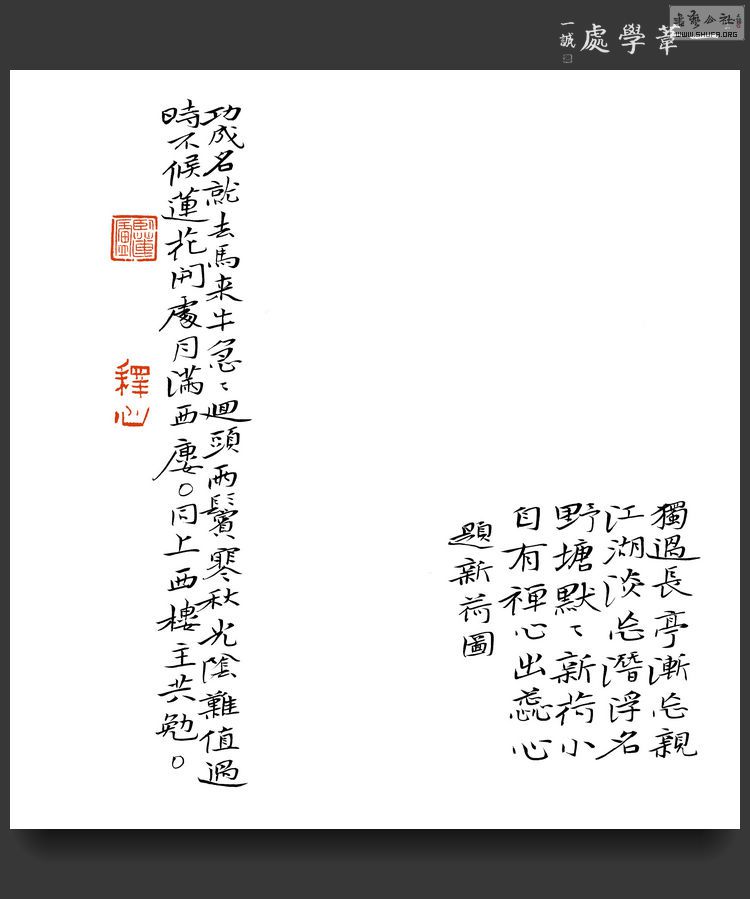 一葦學處
一誠
書藝公社
WWW.SHUFA.ORG
獨過長亭漸忘親
江湖淡忘潛浮名
野塘默〻新荷小
自有禪心出蕊心
題新荷圖
功成名就去馬来牛急〻迴頭兩鬢寒秋光陰難值過
時不候蓮花開處月滿西廔。同上西樓主共勉。
釋心